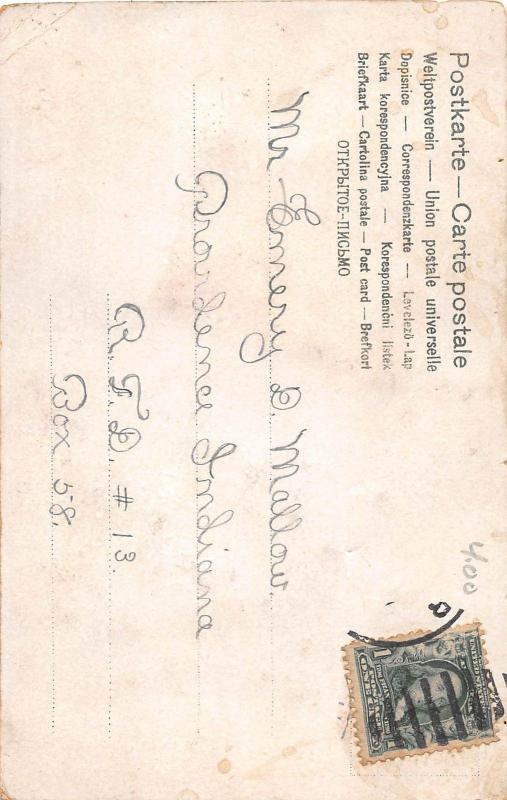 Postkarte — Carte postale
Weltpostverein — Union postale universelle
Dopisnice — Correspondenzkarte — Levelező-Lap
Karta korespondencyjna — Korespondenční lístek
Briefkaart — Cartolina postale — Post card — Brefkort
ОТКРЫТОЕ-ПИСЬМО
400
Mr Emery D. Mallow.
Providence Indiana
R. F. D. # 13.
Box 58.
1
ONE CENT
1